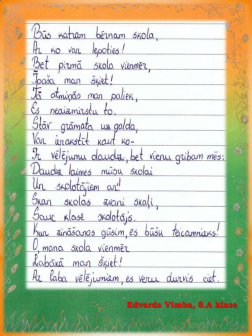 Būs katram bērnam skola,
Ar ko var lepoties!
Bet pirmā skola vienmēr,
Īpaša man šķiet!
Tā atmiņās man paliek,
Es neaizmirstu to.
Stāv grāmata uz galda,
Var ierakstīt kaut ko-
Ir vēlējumu daudz, bet vienu gribam mēs:
Daudz laimes mūsu skolai
Un skolotājiem arī!
Skan skolas zvani skaļi,
Sauc klasē skolotājs.
Kur zināšanas gūsim, es būšu
O, mana skola vienmēr
Labākā man šķiet!
Ar laba vēlējumiem, es veru durvis ciet.
Edvards Vimba, 8.A klase